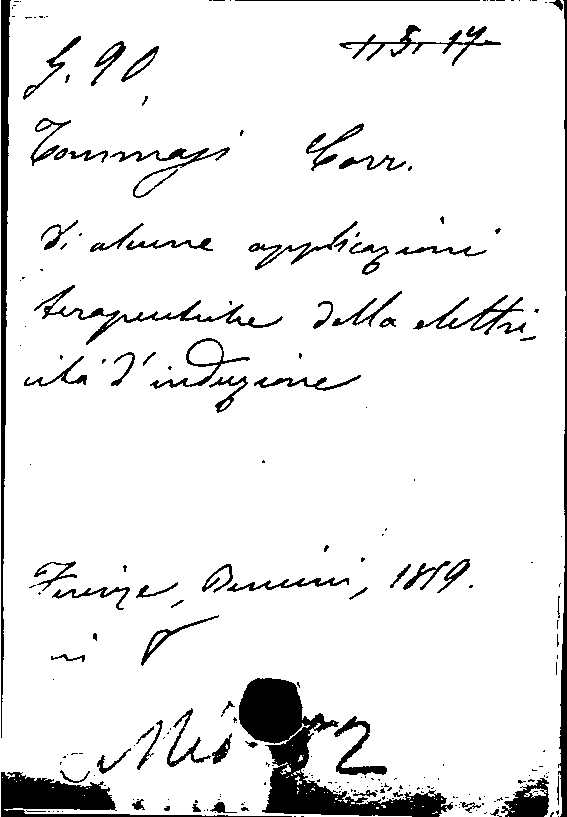 G. 90. 1, 5, 17
Tommasi Corr.
di alcune applicazioni
terapeutiche della elettri-
cità d'induzione
Firenze, Bencini, 1859.
in 8
Mis 82